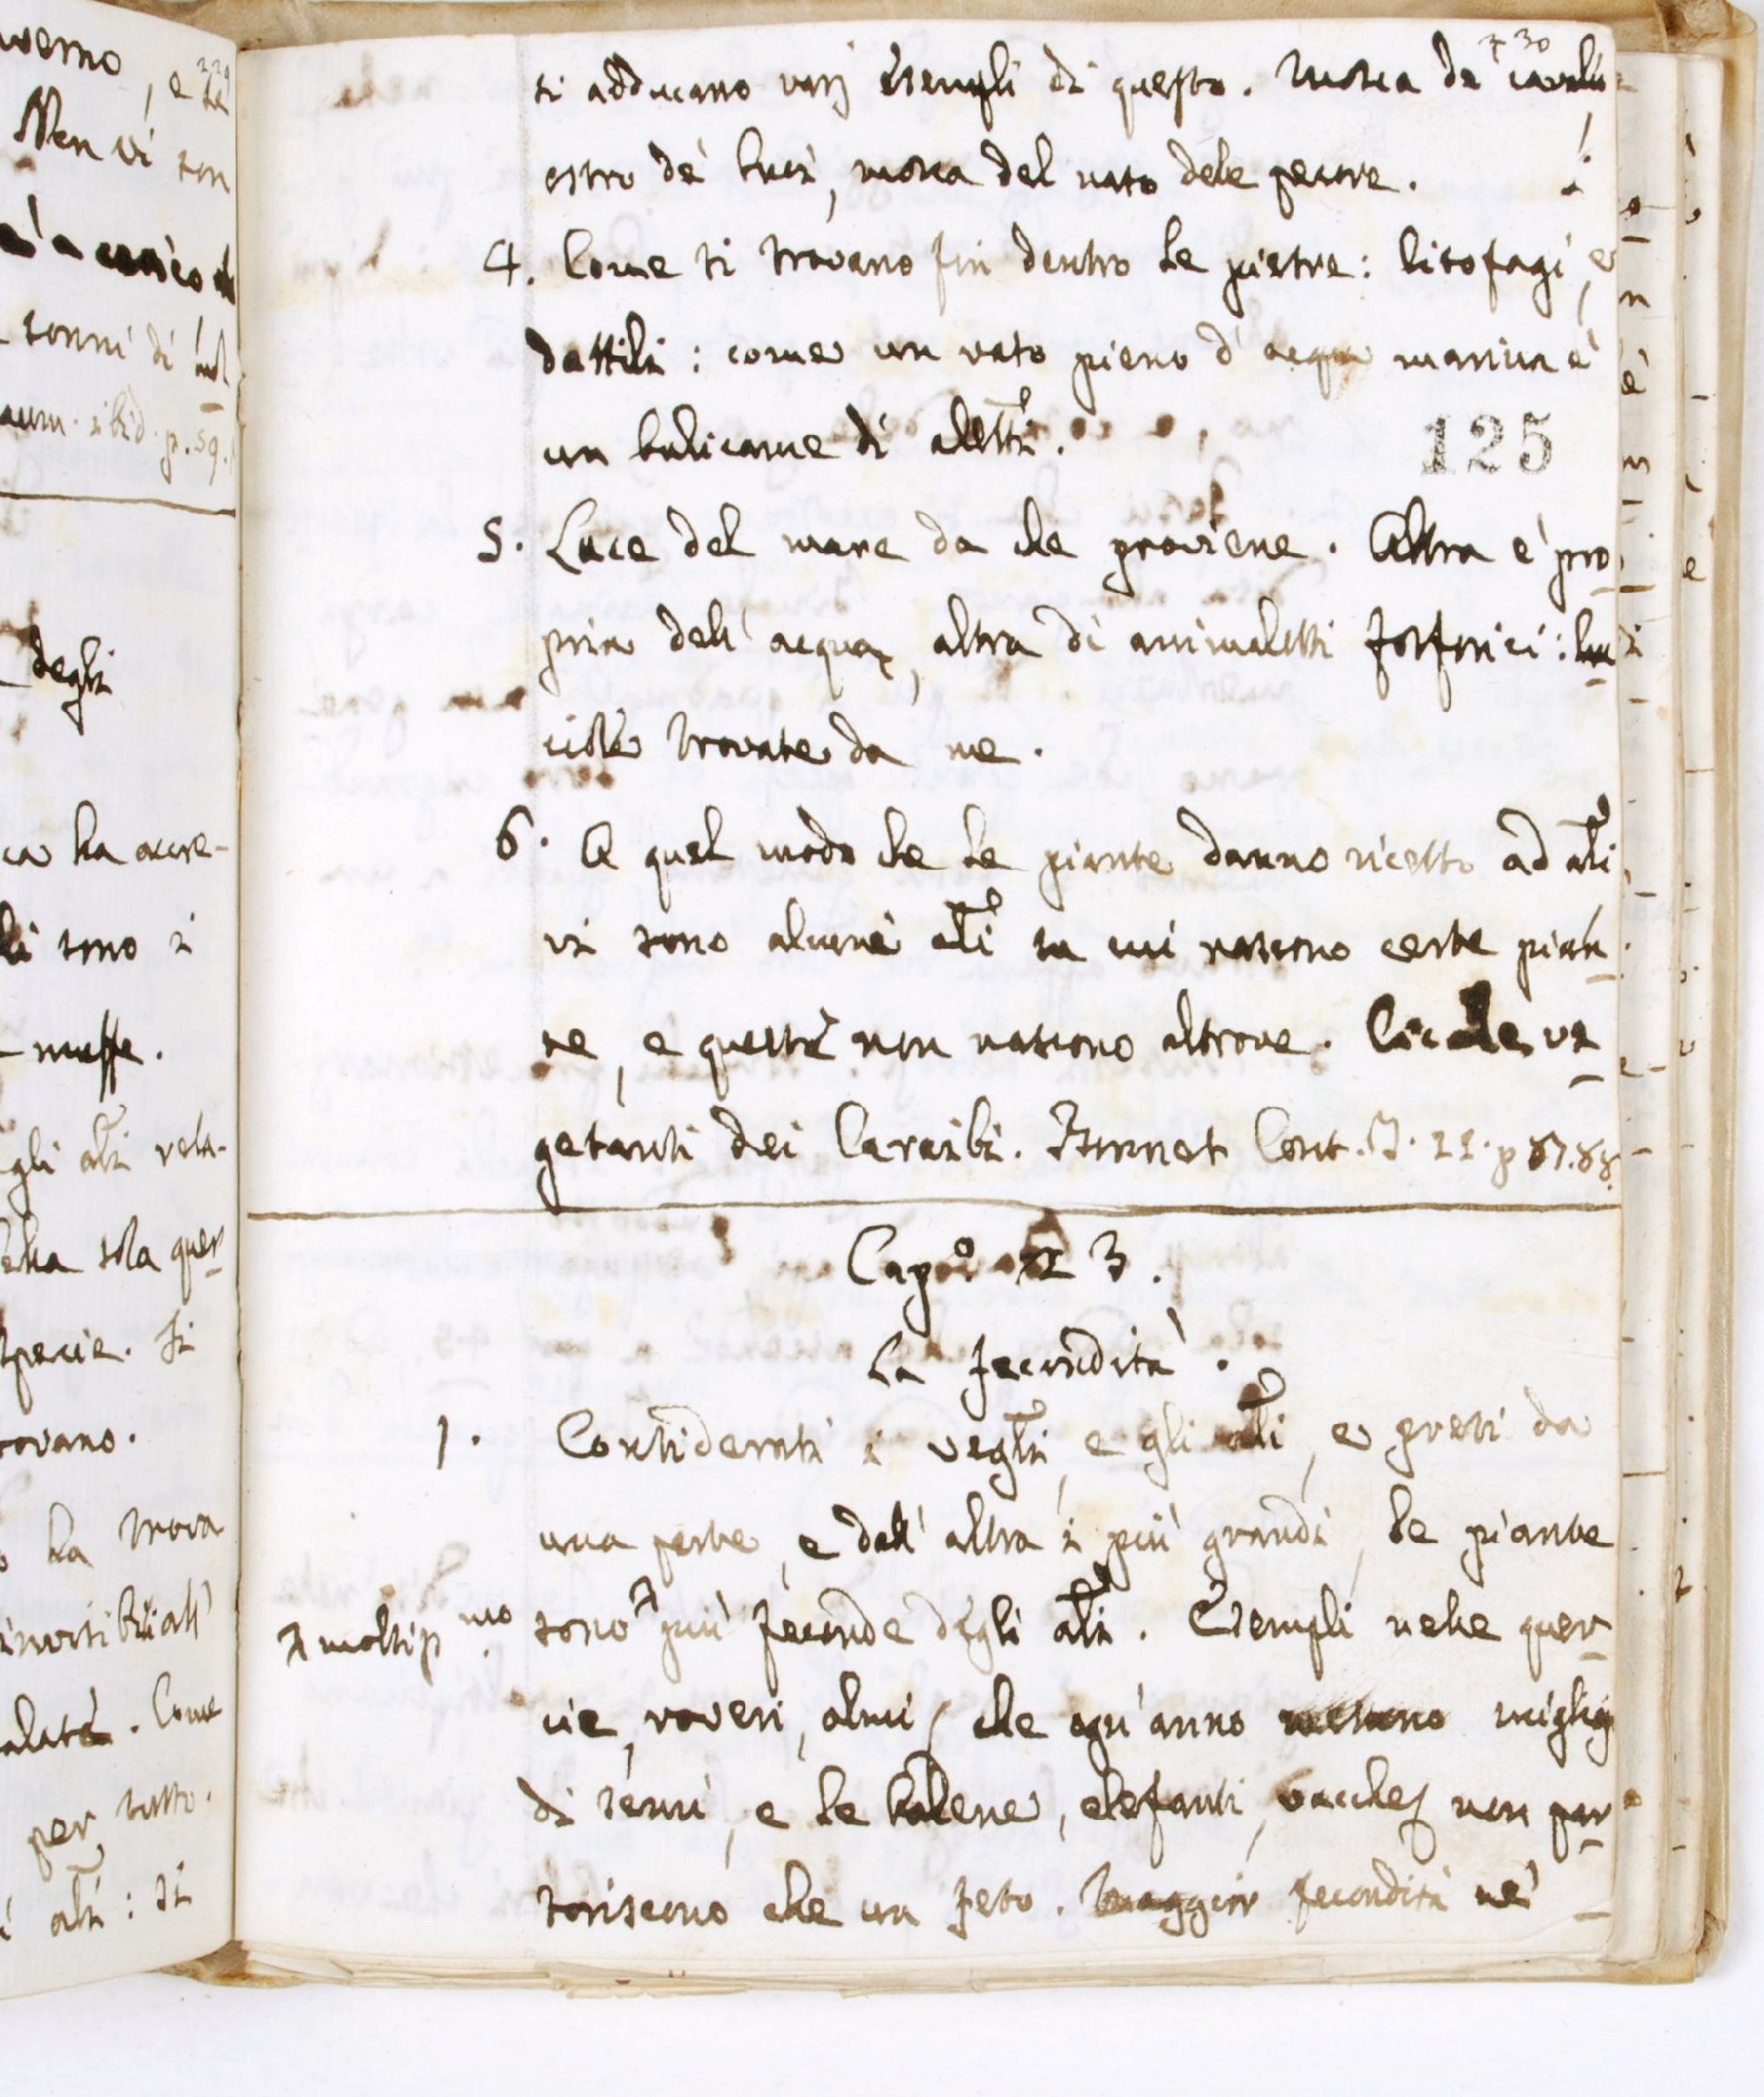 730
si adducano varj esempli di questo. Mosca de' cavalli
estro de' buoi, mosca del naso dele pecore.
4. Come si trovano fin dentro le pietre: litofagi, e
dattili: come un vaso pieno d' acqua marina è
un bulicame di aletti.
125
5. Luce del mare da che proviene. Altra è pro
pria dell' acqua, altra di animaletti fosforici: lu
ciole trovate da me.
6. A quel modo che le piante danno ricetto ad ali
vi sono alcuni ali su cui nascono certe pian
te, e queste non nascono altrove. Cicale ve
getanti dei Caraibi. Bonnet Cont. T. 11. p 87.88.
Capo 23.
La fecondità.
1. Considerati i vegli, e gli ali, e presi da
una parte, e dall' altra i più grandi, le piante
sono più feconde degli ali. Esempli nelle quer
moltip mo
cie, roveri, olmi, che ogn' anno mettono migliaj
di semi, e le balene, elefanti, vacche non par
toriscono che un feto. Maggior fecondità ne'
229
Non vi son
sonni di
ibid. p. 59.
degli
ca ha accre-
li sono i
muffe.
gli ali vela-
sola quer
specie. Si
ha trova
. Come
per tutto.
ali: si